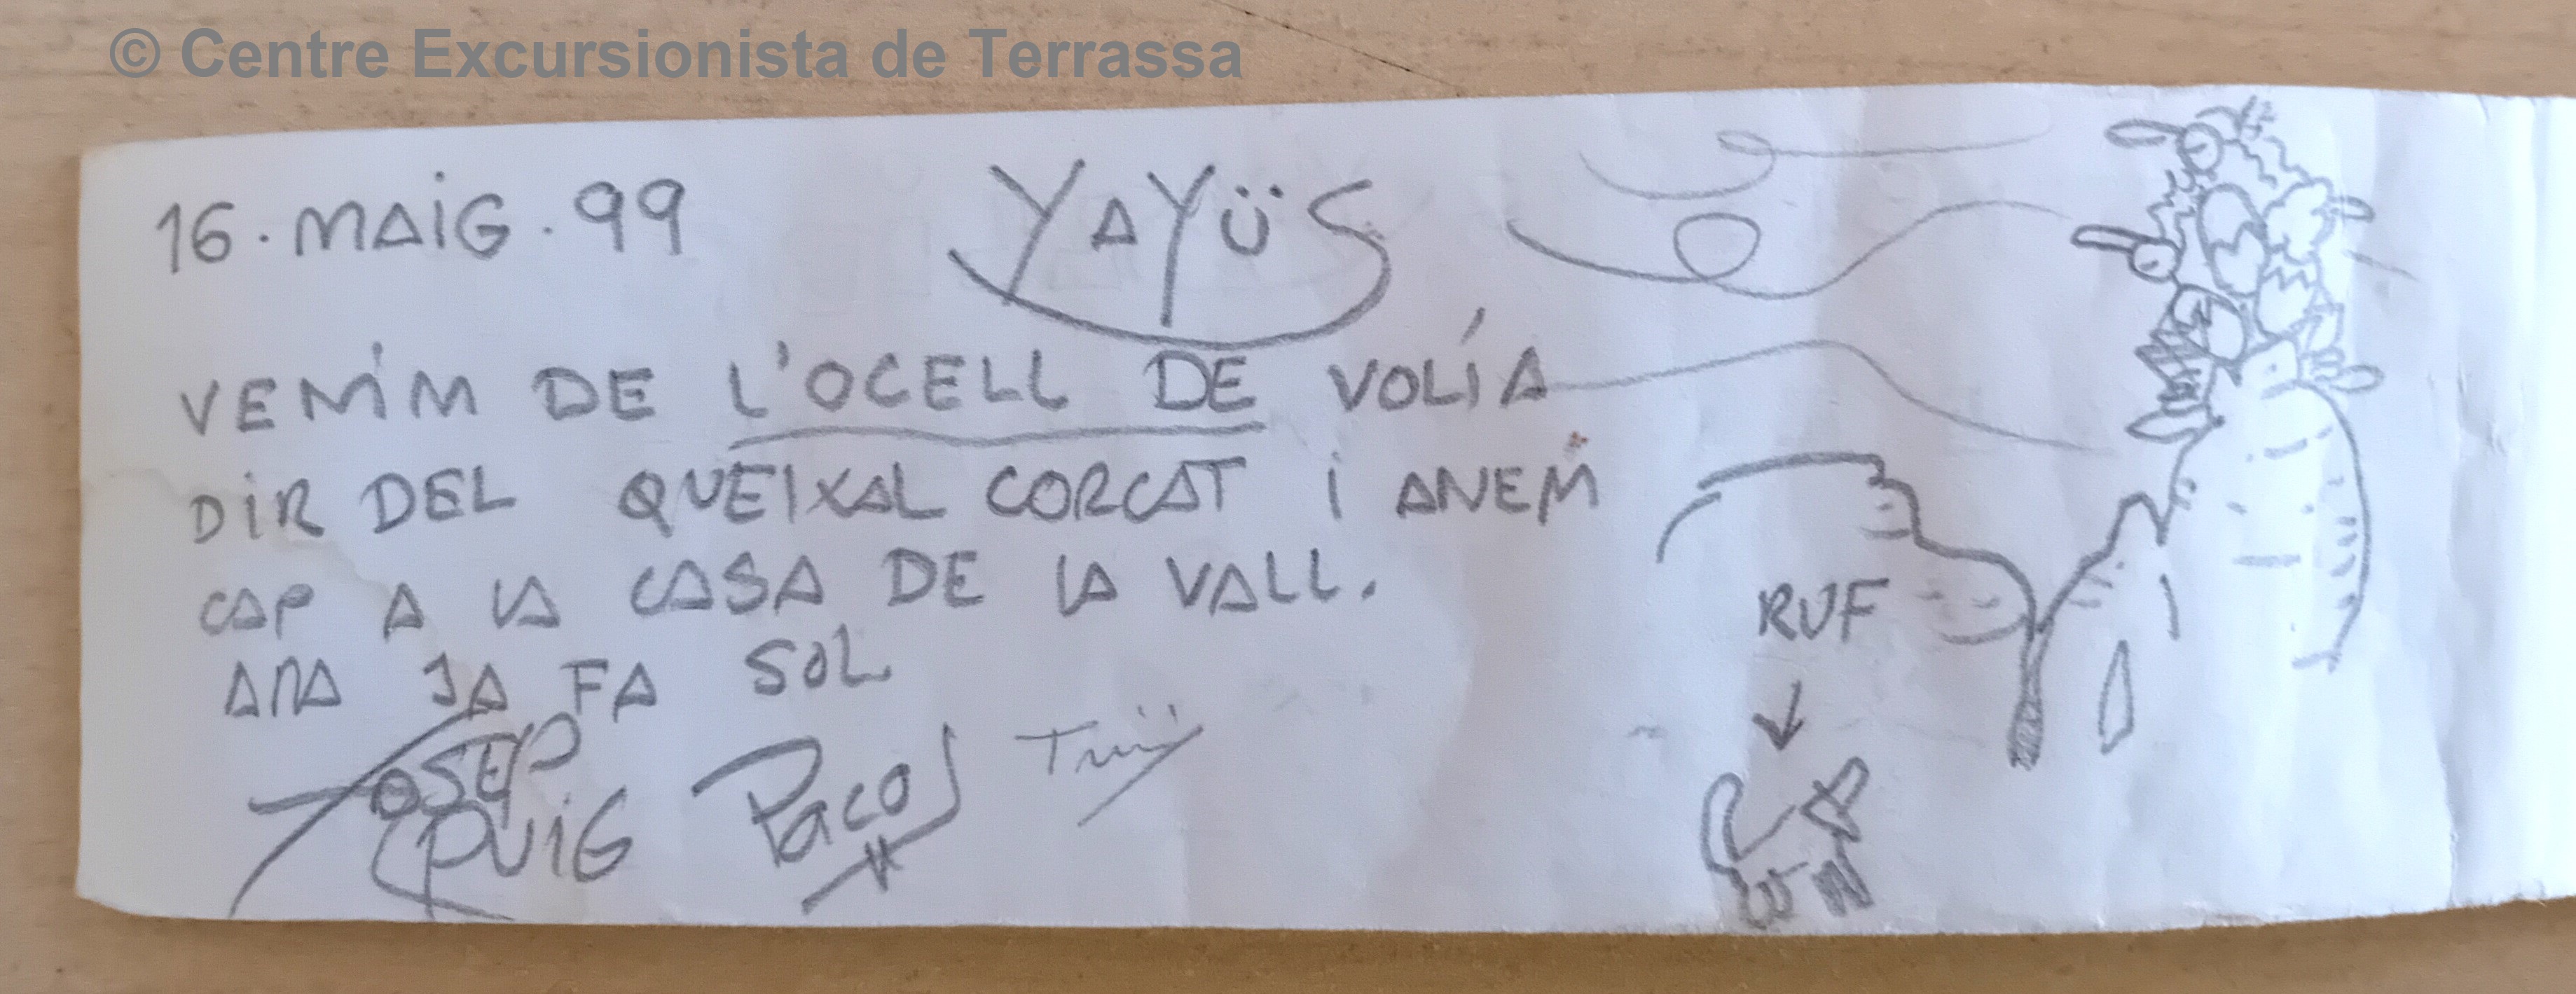 © Centre Excursionista de Terrassa
16 · MAIG · 99
YAYÜS
VENIM DE L'OCELL DE VOLÍA
DIR DEL QUEIXAL CORCAT I ANEM
CAP A LA CASA DE LA VALL.
ARA JA FA SOL
JOSEP
PUIG
Paco
RUF